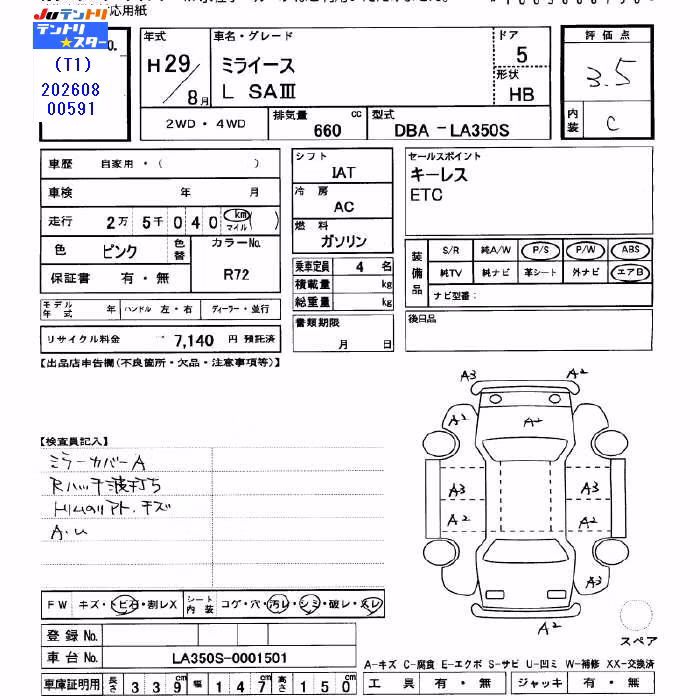 応用紙
JUテントリ
テントリ★スター
(T1)
202608
00591
No.
年式
H29/8月
車名・グレード
ミライース
L SAⅢ
ドア
5
形状
HB
評価点
3.5
内装
C
2WD・4WD
排気量
660
cc
型式
DBA-LA350S
車歴 自家用・( )
車検 年 月
走行 2万 5千 0 4 0 km マイル ( )
色 ピンク 色替 カラーNo. R72
保証書 有・無
モデル年式 年 ハンドル 左・右 ディーラー・並行
リサイクル料金 7,140 円 預託済
シフト
IAT
冷房
AC
燃料
ガソリン
乗車定員 4 名
積載量 kg
総重量 kg
書類期限
月 日
セールスポイント
キーレス
ETC
装備品
S/R 純A/W P/S P/W ABS
純TV 純ナビ 革シート 外ナビ エアB
ナビ型番:
後日品
【出品店申告欄(不良箇所・欠品・注意事項等)】
【検査員記入】
ミラーカバーA
Rハッチ波打ち
トリムのリアト、キズ
A・U
A3 A2
A2 A2
A3 A3
A2 A2
A3
A2
スペア
FW キズ・トビ石・割レX シート内装 コゲ・穴・汚レ・シミ・破レ・スレ
登録No.
車台No. LA350S-0001501
車庫証明用 長さ 339 幅 147 高さ 150
A-キズ C-腐食 E-エクボ S-サビ U-凹ミ W-補修 XX-交換済
工具 有・無 ジャッキ 有・無